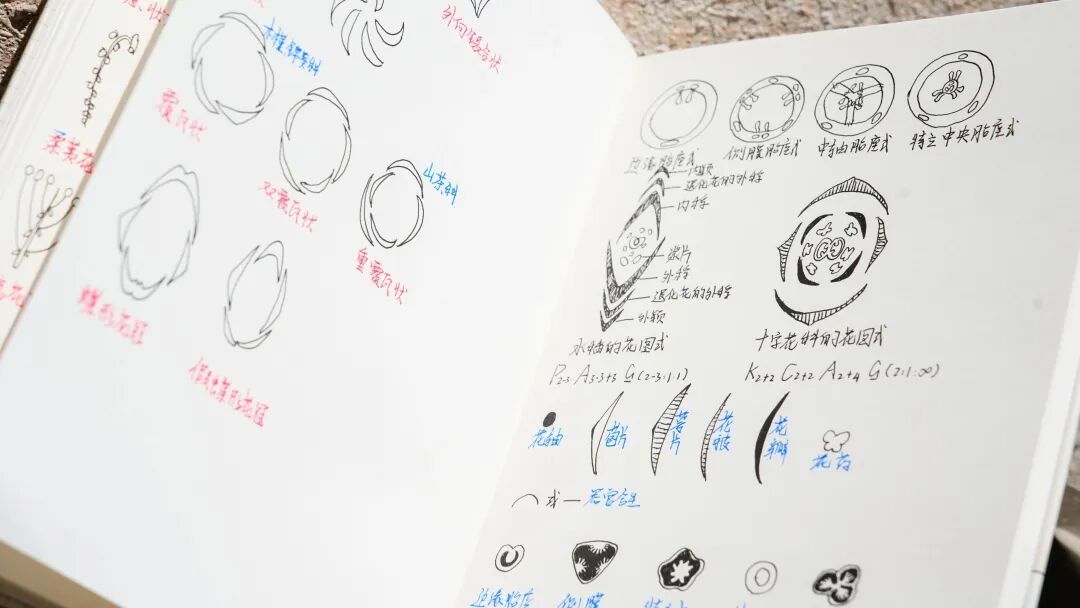 外向镊合状
木槿 锦葵科
覆瓦状
葇荑花
双覆瓦状
山茶科
重覆瓦状
蝶形花冠
假蝶形花冠
边缘胎座式
侧膜胎座式
中轴胎座式
特立中央胎座式
内颖
退化花的外稃
内稃
浆片
外稃
退化花的外稃
外颖
水稻的花图式
十字花科的花图式
P2-3 A3-3+3 G(2-3:1:1)
K2+2 C2+2 A2+4 G(2:1:∞)
花轴
苞片
萼片
花被
花瓣
花药
或
边缘胎座
侧膜